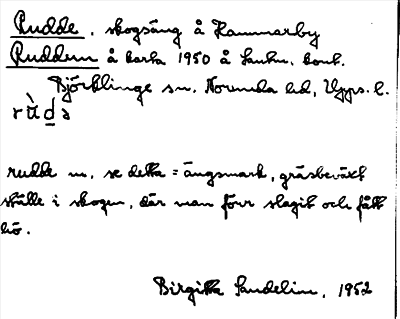 Rudde, skogsäng å Hammarby
Rudden å karta 1950 å Lantm. kont.
Björklinge sn, Norunda hd, Upps. l.
rùdə
rudde m, se detta = ängsmark, gräsbeväxt
ställe i skogen, där man förr slagit och fått
hö.
Birgitta Sandelin, 1952